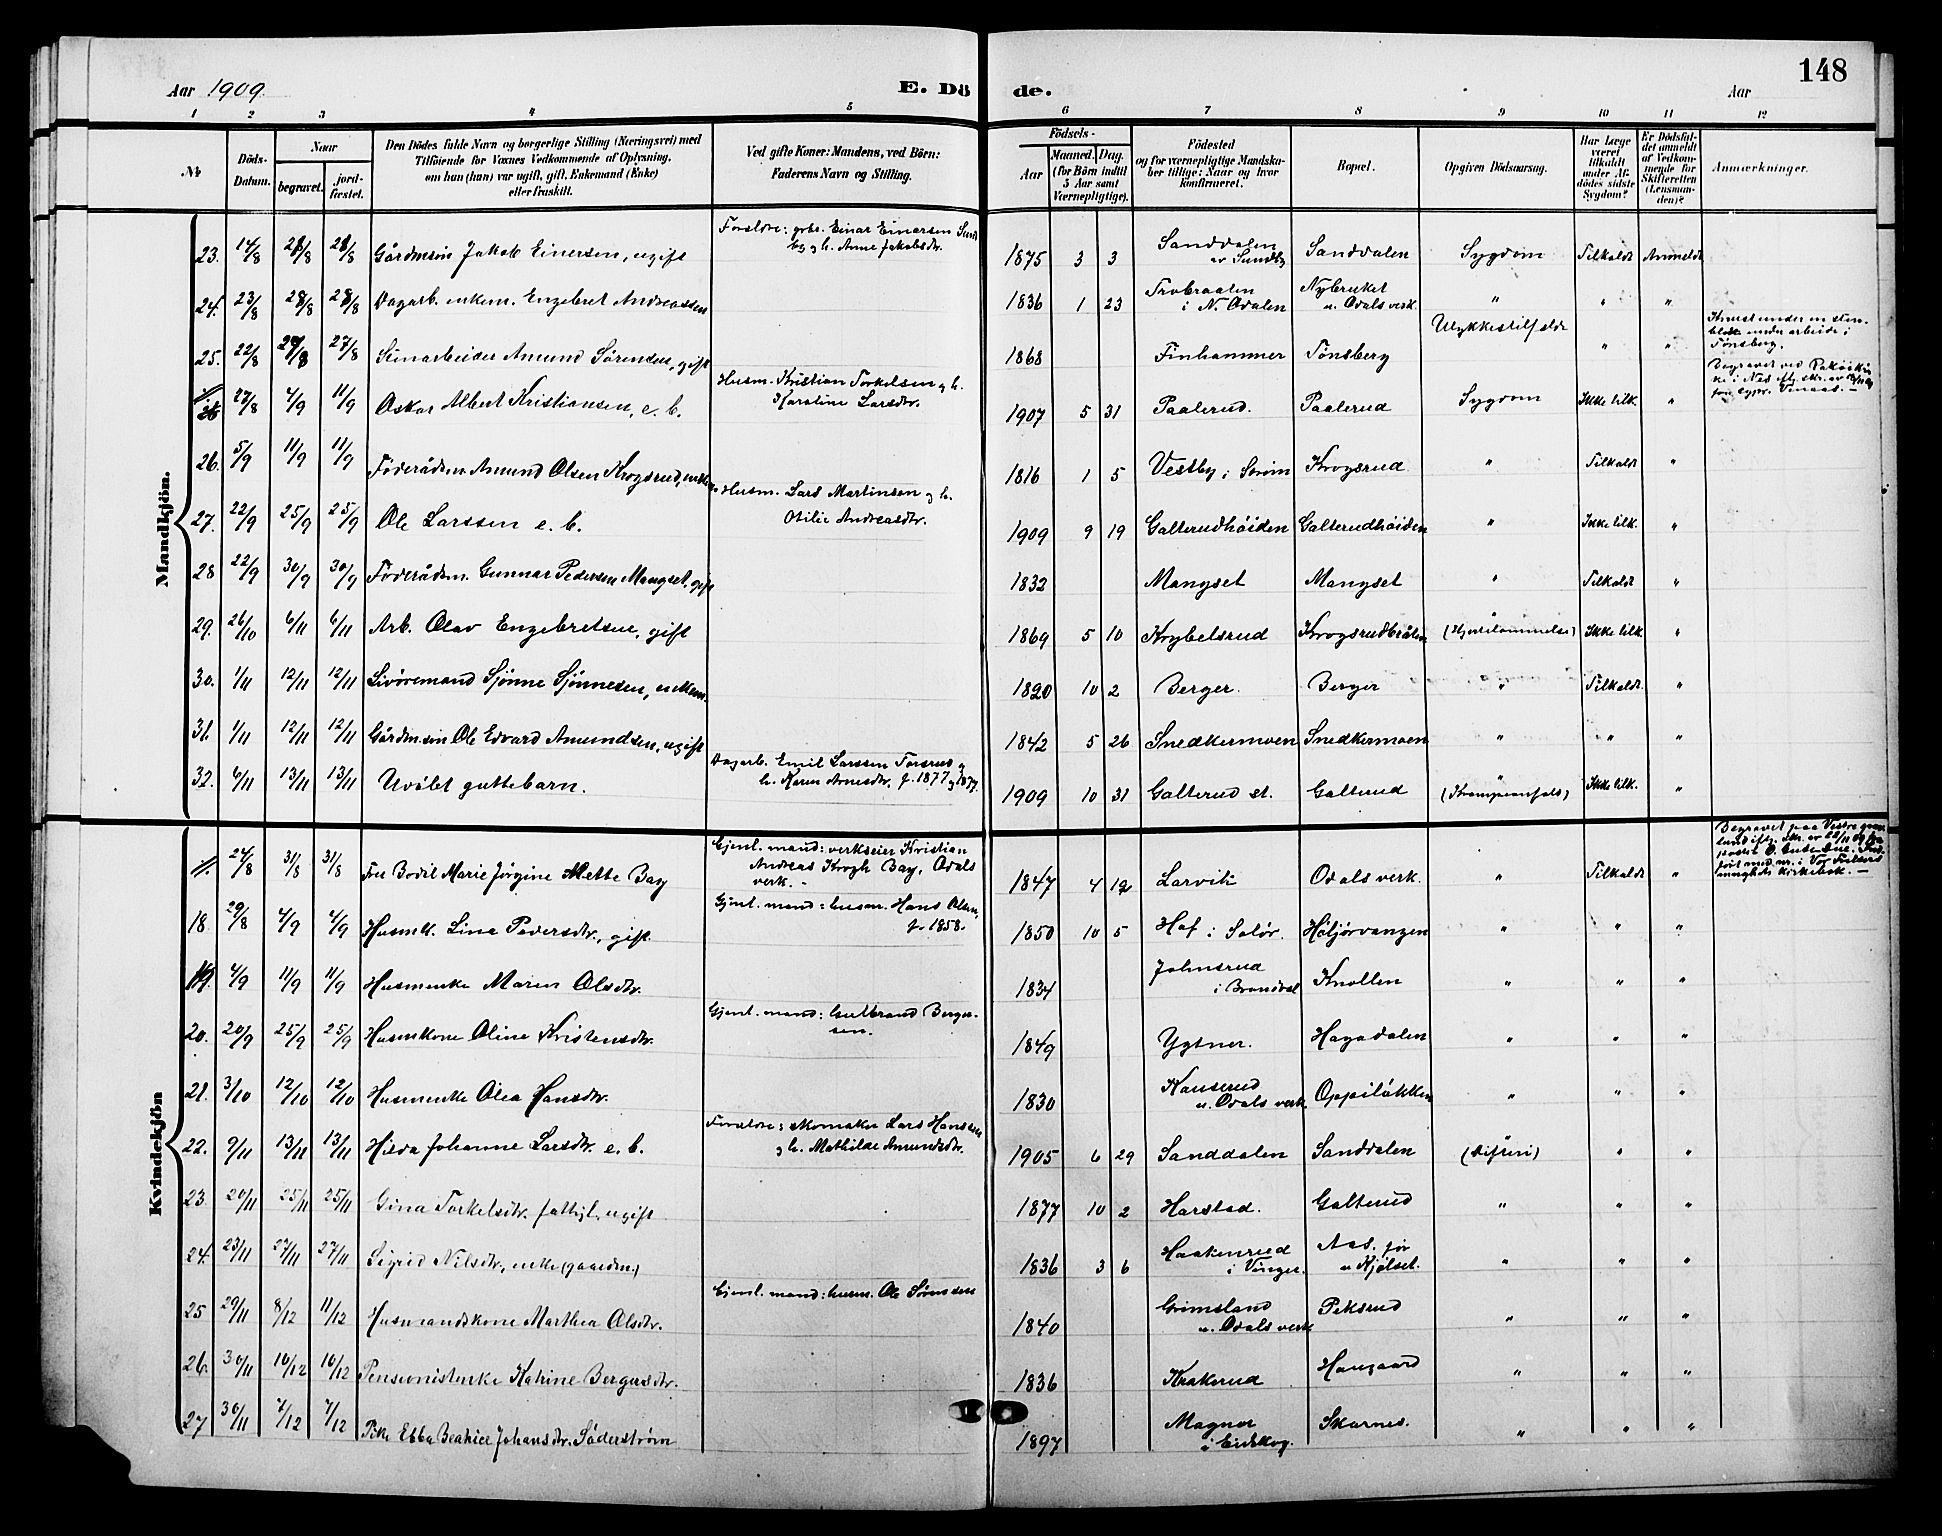 148
Aar 1909.
E. Dö de.
Aar
1 2 3 4 5 6 7 8 9 10 11 12
№
Döds-
Datum.
Naar
begravet.
jord-
fæstet.
Den Dödes fulde Navn og borgerlige Stilling (Næringsvei) med
Tilföiende for Voxnes Vedkommende af Oplysning,
om hun (han) var ugift, gift, Enkemand (Enke)
eller fraskilt.
Ved gifte Koner: Mandens, ved Börn:
Faderens Navn og Stilling.
Födsels-
Aar
Maaned. Dag.
(for Börn indtil
5 Aar samt
Værnepligtige).
Födested
og for værnepligtige Mandska-
ber tillige: Naar og hvor
konfirmeret.
Bopæl.
Opgiven Dödsaarsag.
Har Læge
været
tilkaldt
under Af-
dödes sidste
Sygdom?
Er Dödsfal-
det anmeldt
af Vedkom-
mende for
Skifteretten
(Lensman-
den)?
Anmærkninger.
Mandkjön.
23. 14/8 21/8 21/8 Gårdmsön Jakob Einersen, ugift Forældre: grbr. Einar Einarsen Sund
by og h. Anne Jakobsdtr. 1875 3 3 Sanddalen
av Sundby Sanddalen Sygdom Tilkaldt Anmeldt
24. 23/8 28/8 28/8 Dagarb. enkem. Engebret Andreassen 1836 1 23
i N. Odalen Nybruket
u. Odals verk. " " "
25. 22/8 27/8 27/8 Stenarbeider Amund Sørensen, gift 1868 Finhammer Tønsberg Ulykkestilfælde " " Knust under en sten-
blok under arbeide i
Tønsberg.
27/8 4/9 11/9 Oskar Albert Kristiansen, e. b. Husm. Kristian Torkelsen og h.
Karoline Larsdtr. 1907 5 31 Paalerud. Paalerud Sygdom Ikke tilk. "
26. 5/9 11/9 11/9 Föderådsm. Amund Olsen Krogsrud, enkem. 1816 1 5 Vestby i Sørum Krogsrud " Tilkaldt "
27. 22/9 25/9 25/9 Ole Larssen e. b. Husm. Lars Martinsen og h.
Otilie Andreasdtr. 1909 9 19 Galterudhöiden Galterudhöiden " Ikke tilk. "
28 22/9 30/9 30/9 Föderådsm. Gunnar Pedersen Mangset, gift 1832 Mangset Mangset " Tilkaldt "
29. 26/10 6/11 6/11 Arb. Olav Engebretsen, gift 1869 5 10 Krybelsrud Krogsrudbråten (Hjertelammelse) Ikke tilk. "
30. 1/11 12/11 12/11 Livöremand Sjønne Sjønnesen, enkem. 1820 10 2 Berger. Berger " Tilkaldt. "
31. 1/11 12/11 12/11 Gårdmsön Ole Edvard Amundsen, ugift 1842 5 26 Snedkermoen Snedkermoen " " "
32. 6/11 13/11 13/11 Udöbt guttebarn. Dagarb. Emil Larssen Forsrud og
h. Karen Arnesdtr. f. 1877 og 1877. 1909 10 31 Galterud st. Galterud "
(Krampeanfald) Ikke tilk. "
Kvindekjön
24/8 31/8 31/8 Fru Bodil Marie Jörgine Mette Bay Gjenl. mand: verkseier Kristian
Andreas Krogh Bay, Odals
verk. - 1847 4 12 Larvik Odals verk. " Tilkaldt "
18. 29/8 4/9 4/9 Husmk. Lina Pedersdtr., gift. Gjenl. mand: husm. Hans Olsen,
f. 1858. 1850 10 5 Hof i Solør. Höljörvangen " " "
19. 4/9 11/9 11/9 Husmenke Maren Olsdtr. 1834 Johnsrud
i Brandval Knollen " " "
20. 20/9 25/9 25/9 Husmkone Oline Kristensdtr. Gjenl. mand: Gulbrand Berger-
sen. 1849 Ygtner. Hagadalen " " "
21. 3/10 12/10 12/10 Husmenke Olea Hansdtr. 1830 Kauserud
u. Odals verk. Oppilökken " " "
22. 9/11 13/11 13/11 Hilda Johanne Larsdtr. e. b. Forældre: skomaker Lars Hanssen
og h. Mathilde Amundsdtr. 1905 6 29 Sanddalen Sanddalen (Difteri) " "
23. 20/11 25/11 25/11 Gina Torkelsdtr. fattigl., ugift 1877 10 2 Harstad. Galterud " " "
24. 23/11 27/11 27/11 Sigrid Nilsdtr., enke (gaardm.) 1836 3 6 Haakenrud
i Vinger. Aas. för
u Kjølset. " " "
25 29/11 8/12 11/12 Husmandskone Marthea Olsdtr. Gjenl. mand: husm. Ole Sørenssen 1840 Grimsland
u. Odals verk Peksrud " " "
26. 30/11 10/12 10/12 Pensionistenke Katrine Bergersdtr. 1836 Krakerud Haugaard " " "
27 30/11 7/12 7/12 Pike Ebba Beatrice Johansdtr. Söderström 1897 Magnor
i Eidskog. Skarnes. " " "